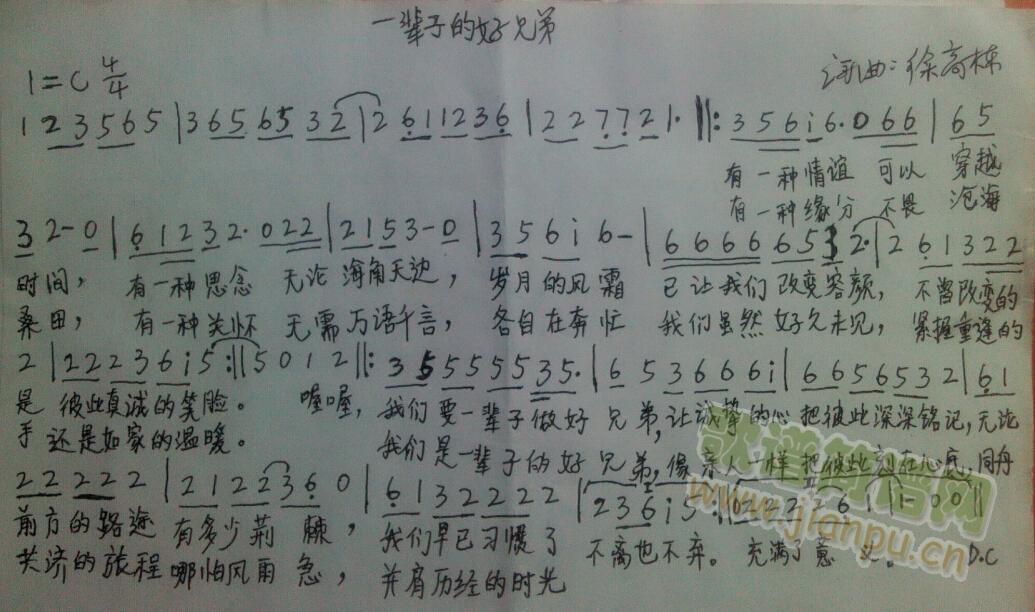 一辈子的好兄弟
1=C 4/4
词曲:徐高栋
1 2 3 5 6 5 | 3 6 5 6 5 3 2 | 2 6 1 1 2 3 6 | 2 2 7 7 2 1· ‖: 3 5 6 i 6· 0 6 6 | 6 5
有一种情谊 可以 穿越
有一种缘分 不畏 沧海
3 2 - 0 | 6 1 2 3 2· 0 2 2 | 2 1 5 3 - 0 | 3 5 6 i 6 - | 6 6 6 6 6 5 3 2· | 2 6 1 3 2 2
时间, 有一种思念 无论 海角天边, 岁月的风霜 已让我们改变容颜, 不曾改变的
桑田, 有一种关怀 无需 万语千言, 各自在奔忙 我们虽然好久未见, 紧握重逢的
2 | 2 2 2 3 6 i 5 :‖ 5 0 1 2 ‖: 3 5 5 5 5 5 3 5· | 6 5 3 6 6 6 i | 6 6 5 6 5 3 2 | 6 1
是 彼此真诚的笑脸。 喔喔, 我们要一辈子做好兄弟, 让诚挚的心把彼此深深铭记, 无论
手 还是如家的温暖。 我们是一辈子的好兄弟, 像亲人一样把彼此刻在心底, 同舟
2 2 2 2 2 | 2 1 2 2 3 6 0 | 6 1 3 2 2 2 2 2 | 2 3 6 i 5 :‖ 0 2 2 2 2 6 1 | 1 - 0 0 ‖
前方的路途 有多少荆棘, 我们早已习惯了 不离也不弃。 充满了意义。 D.C
共济的旅程 哪怕风雨急, 并肩历经的时光
歌谱简谱网
www.jianpu.cn